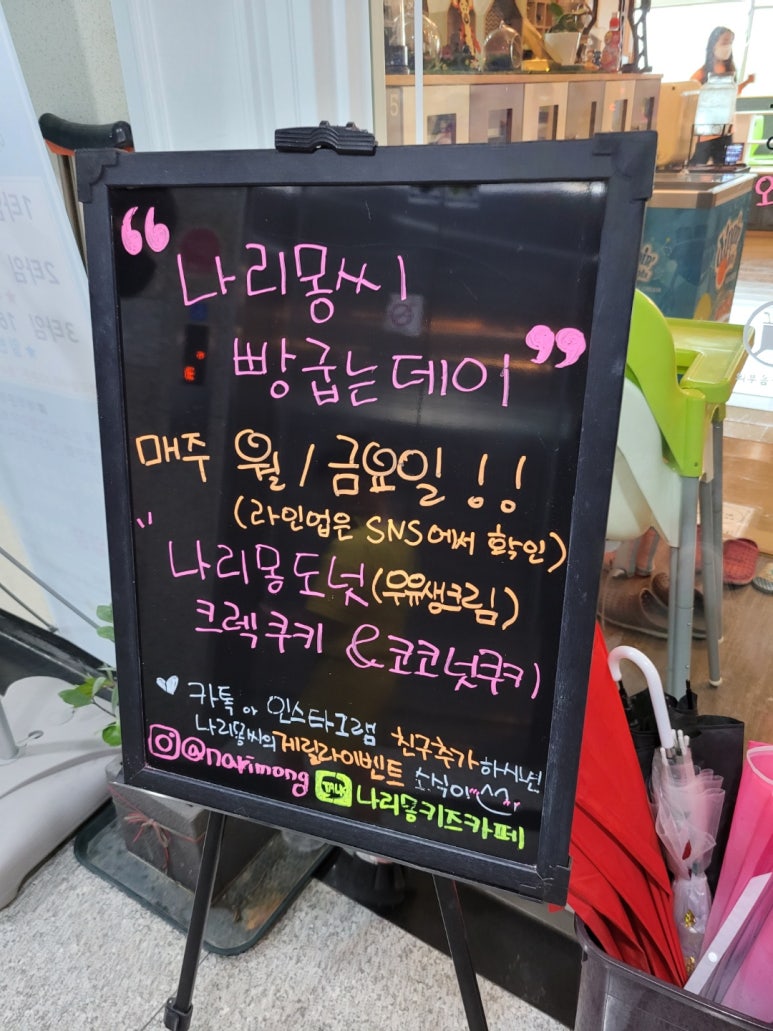 “나리몽씨
빵굽는데이”
매주 월/금요일!!
(라인업은 SNS에서 확인)
" 나리몽도넛(우유생크림)
크렉쿠키 &코코넛쿠키)
카톡이 인스타그램 친구추가하시면
나리몽씨의게릴라이벤트 소식이^^
@narimong TALK 나리몽키즈카페
1타임
2타임
3타임